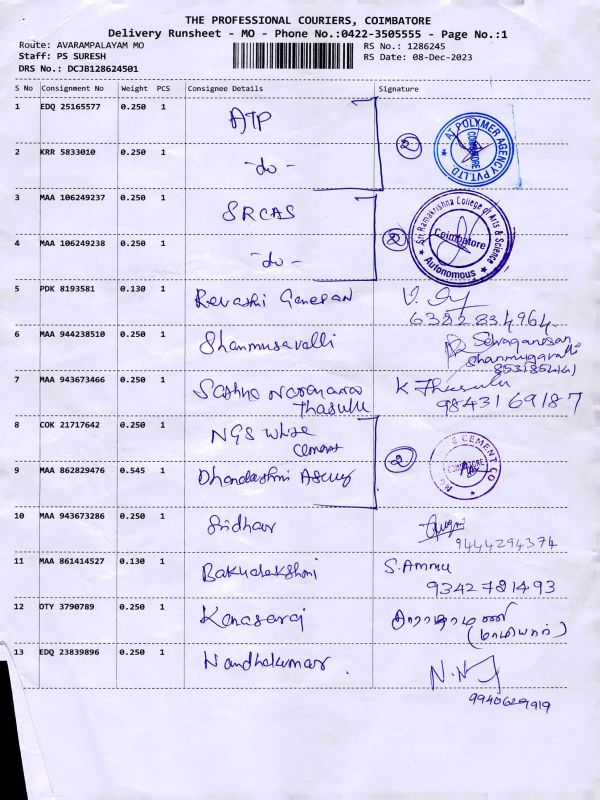 THE PROFESSIONAL COURIERS, COIMBATORE
Delivery Runsheet - MO - Phone No.:0422-3505555 - Page No.:1
Route: AVARAMPALAYAM MO
RS No.: 1286245
Staff: PS SURESH
RS Date: 08-Dec-2023
DRS No.: DCJB128624501
S No Consignment No Weight PCS Consignee Details Signature
1 EDQ 25165577 0.250 1 ATP
2 AT POLYMER AGENCY PVT.LTD. COIMBATORE
2 KRR 5833010 0.250 1 -do-
3 MAA 106249237 0.250 1 SRCAS
2 Sri Ramakrishna College of Arts & Science Coimbatore Autonomous
4 MAA 106249238 0.250 1 -do-
5 PDK 8193581 0.130 1 Revathi Ganesan
6382834964
6 MAA 944238510 0.250 1 Shanmugavalli
Selvaganesan
Shanmugavalli
7 MAA 943673466 0.250 1 Narayana K
Thasulu
9843169187
8 COK 21717642 0.250 1 NGS White
cement
2 E CEMENT CO
9 MAA 862829476 0.545 1 Dhandashmi Agency
10 MAA 943673286 0.250 1 Sridhar
9444294374
11 MAA 861414527 0.130 1 S.Ammu
9342781493
12 OTY 3790789 0.250 1 Kanagaraj
(மாமியார்)
13 EDQ 23839896 0.250 1 Nandhakumar
9940629919